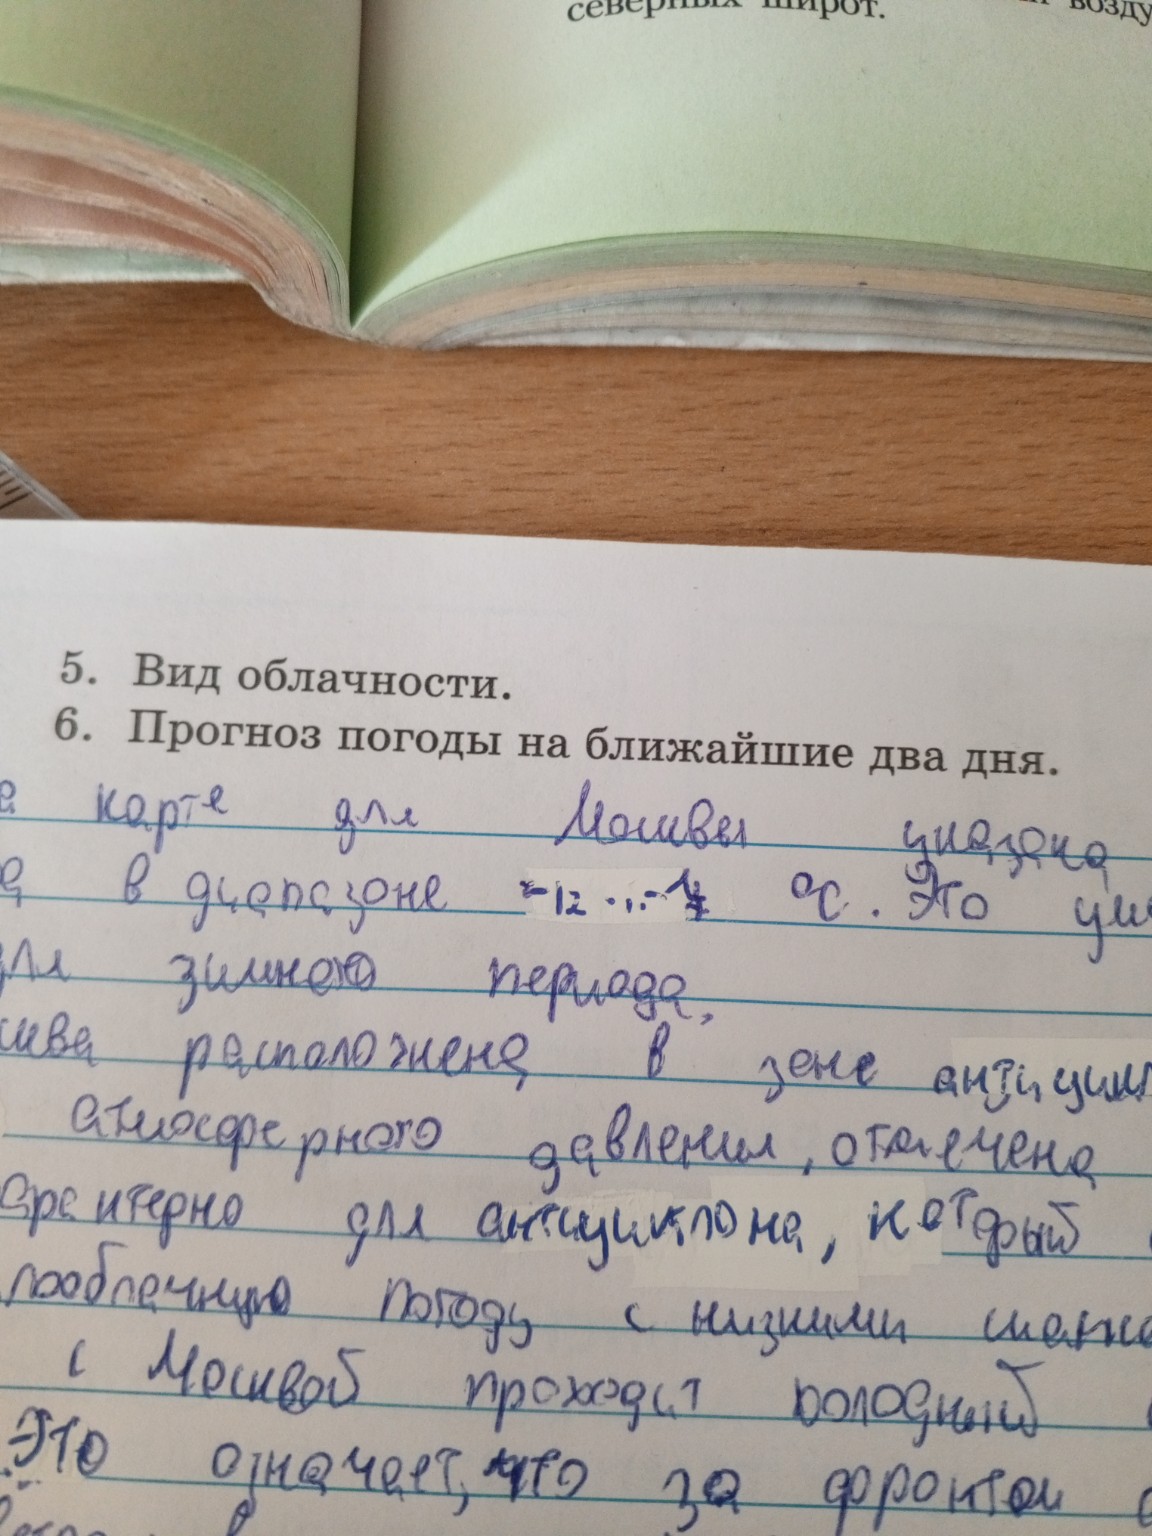 северных широт.
5. Вид облачности.
6. Прогноз погоды на ближайшие два дня.
карте для Москвы указана
в диапазоне -12...-17 °C. Это
для зимнего периода,
расположена в зоне
атмосферного давления, отмечена
для антициклона, который
погоду с низкими
с Москвой проходит холодный
Это означает, что за фронтом